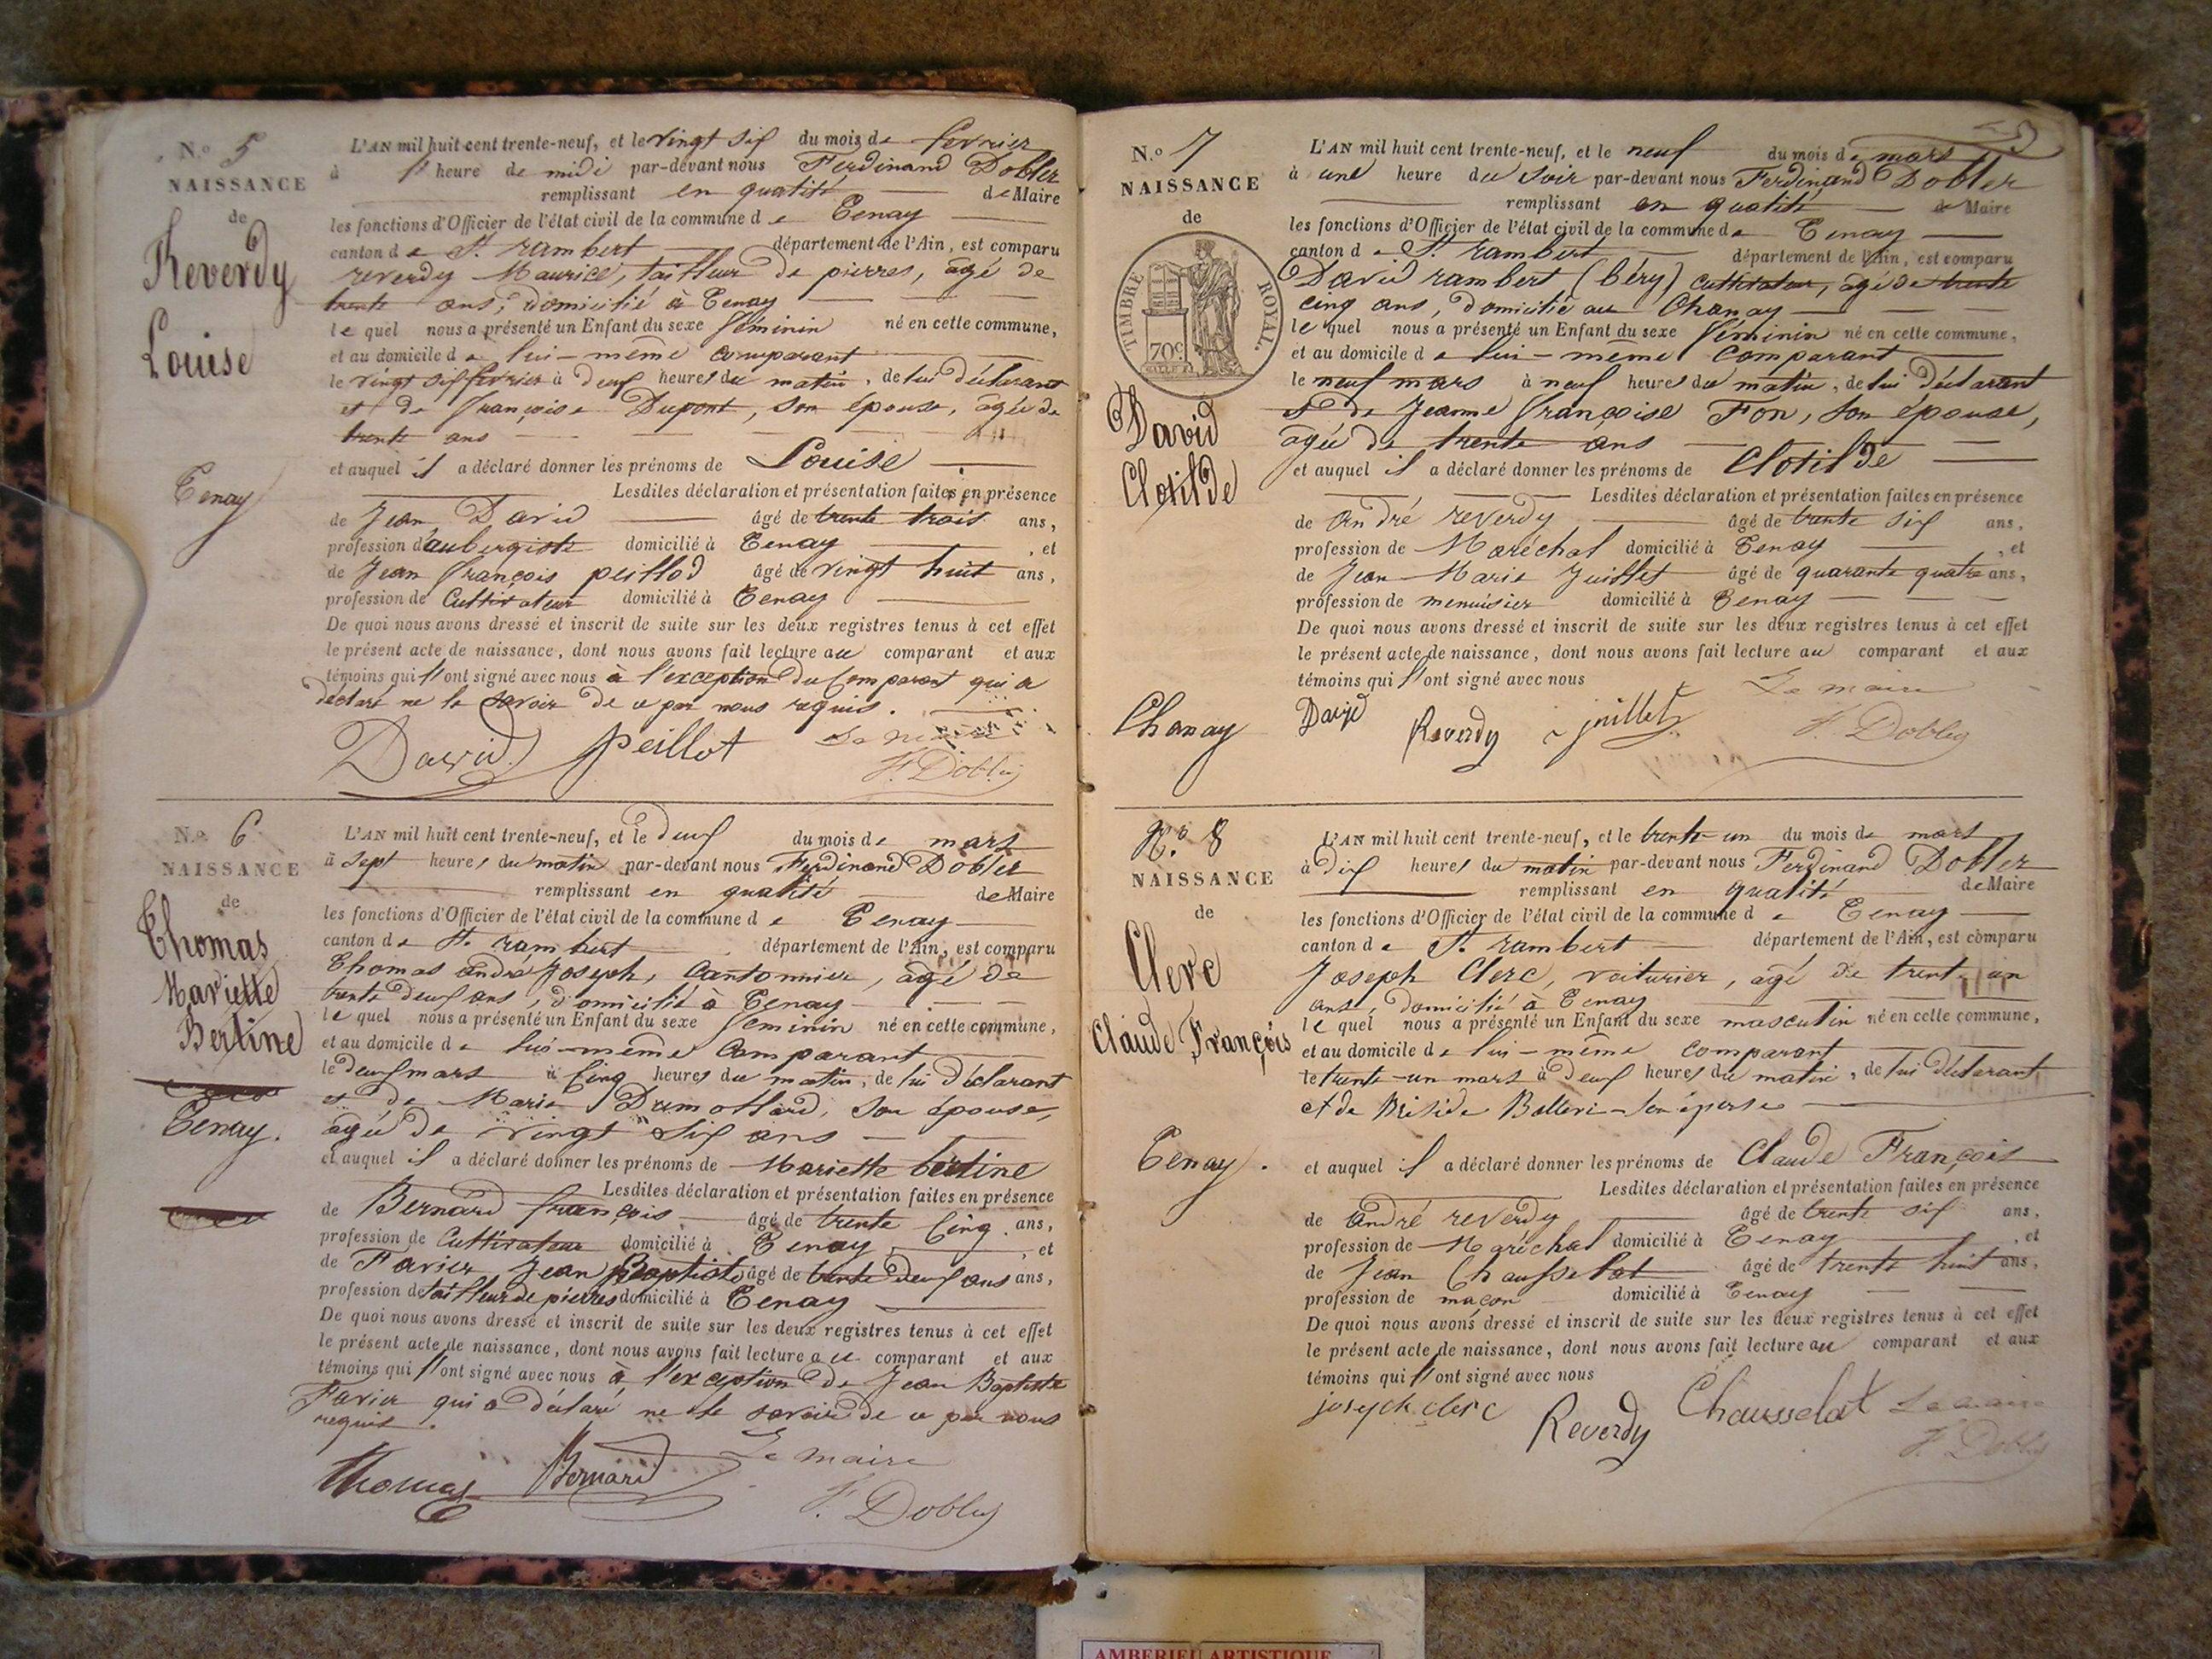 N.º 5
NAISSANCE
de
Reverdy
Louise
Tenay
L'AN mil huit cent trente-neuf, et le vingt six du mois de fevrier
à l'heure de midi par-devant nous Ferdinand Dobler
remplissant en qualité de Maire
les fonctions d'Officier de l'état civil de la commune de Tenay
canton de St. rambert département de l'Ain, est comparu
reverdy Maurice, tailleur de pierres, âgé de
trente ans, domicilié à Tenay
lequel nous a présenté un Enfant du sexe féminin né en cette commune,
et au domicile de lui-même comparant
le vingt six fevrier à deux heures du matin, de lui déclarant
et de françoise Dupont, son épouse, âgée de
trente ans
et auquel il a déclaré donner les prénoms de Louise
Lesdites déclaration et présentation faites en présence
de Jean David âgé de trente trois ans,
profession d'aubergiste domicilié à Tenay , et
de Jean françois peillod âgé de vingt huit ans,
profession de Cultivateur domicilié à Tenay
De quoi nous avons dressé et inscrit de suite sur les deux registres tenus à cet effet
le présent acte de naissance, dont nous avons fait lecture au comparant et aux
témoins qui l'ont signé avec nous à l'exception du Comparant qui a
déclaré ne le savoir de ce par nous requis.
David Peillot Le maire
F. Dobler
N.º 6
NAISSANCE
de
Thomas
Mariette
Bertine
Tenay.
L'AN mil huit cent trente-neuf, et le deux du mois de mars
à sept heures du matin par-devant nous Ferdinand Dobler
remplissant en qualité de Maire
les fonctions d'Officier de l'état civil de la commune de Tenay
canton de St. rambert département de l'Ain, est comparu
Thomas andré Joseph, Cantonnier, âgé de
trente deux ans, domicilié à Tenay
lequel nous a présenté un Enfant du sexe féminin né en cette commune,
et au domicile de lui-même Comparant
le deux mars à Cinq heures du matin, de lui déclarant
et de Marie Dumollard, son épouse,
âgée de vingt six ans
et auquel il a déclaré donner les prénoms de Mariette bertine
Lesdites déclaration et présentation faites en présence
de Bernard françois âgé de trente Cinq ans,
profession de Cultivateur domicilié à Tenay , et
de Favier Jean Baptiste âgé de trente deux ans ans,
profession de tailleur de pierres domicilié à Tenay
De quoi nous avons dressé et inscrit de suite sur les deux registres tenus à cet effet
le présent acte de naissance, dont nous avons fait lecture au comparant et aux
témoins qui l'ont signé avec nous à l'exception de Jean Baptiste
Favier qui a déclaré ne le savoir de ce par nous
requis.
Thomas Bernard Le maire
F. Dobler
N.º 7
NAISSANCE
de
TIMBRE ROYAL.
70c
David
Clotilde
Chanay
L'AN mil huit cent trente-neuf, et le neuf du mois de mars
à une heure du soir par-devant nous Ferdinand Dobler
remplissant en qualité de Maire
les fonctions d'Officier de l'état civil de la commune de Tenay
canton de St. rambert département de l'Ain, est comparu
David rambert (béry) cultivateur, âgé de trente
cinq ans, domicilié au Chanay
lequel nous a présenté un Enfant du sexe féminin né en cette commune,
et au domicile de lui-même comparant
le neuf mars à neuf heures du matin, de lui déclarant
et de Jeanne françoise Fon, son épouse,
âgée de trente ans
et auquel il a déclaré donner les prénoms de Clotilde
Lesdites déclaration et présentation faites en présence
de andré reverdy âgé de trente six ans,
profession de Maréchal domicilié à Tenay , et
de Jean-Marie Juillet âgé de quarante quatre ans,
profession de menuisier domicilié à Tenay
De quoi nous avons dressé et inscrit de suite sur les deux registres tenus à cet effet
le présent acte de naissance, dont nous avons fait lecture au comparant et aux
témoins qui l'ont signé avec nous
David Reverdy juillet Le maire
F. Dobler
N.º 8
NAISSANCE
de
Clerc
Claude François
Tenay.
L'AN mil huit cent trente-neuf, et le trente-un du mois de mars
à dix heures du matin par-devant nous Ferdinand Dobler
remplissant en qualité de Maire
les fonctions d'Officier de l'état civil de la commune de Tenay
canton de St. rambert département de l'Ain, est comparu
Joseph Clerc, voiturier, âgé de trente un
ans, domicilié à Tenay
lequel nous a présenté un Enfant du sexe masculin né en cette commune,
et au domicile de lui-même comparant
le trente-un mars à deux heures du matin, de lui déclarant
et de son épouse
et auquel il a déclaré donner les prénoms de Claude François
Lesdites déclaration et présentation faites en présence
de andré reverdy âgé de trente six ans,
profession de Maréchal domicilié à Tenay , et
de Jean Chausselat âgé de trente huit ans,
profession de maçon domicilié à Tenay
De quoi nous avons dressé et inscrit de suite sur les deux registres tenus à cet effet
le présent acte de naissance, dont nous avons fait lecture au comparant et aux
témoins qui l'ont signé avec nous
joseph clerc Reverdy Chausselat Le maire
F. Dobler
AMBERIEU ARTISTIQUE